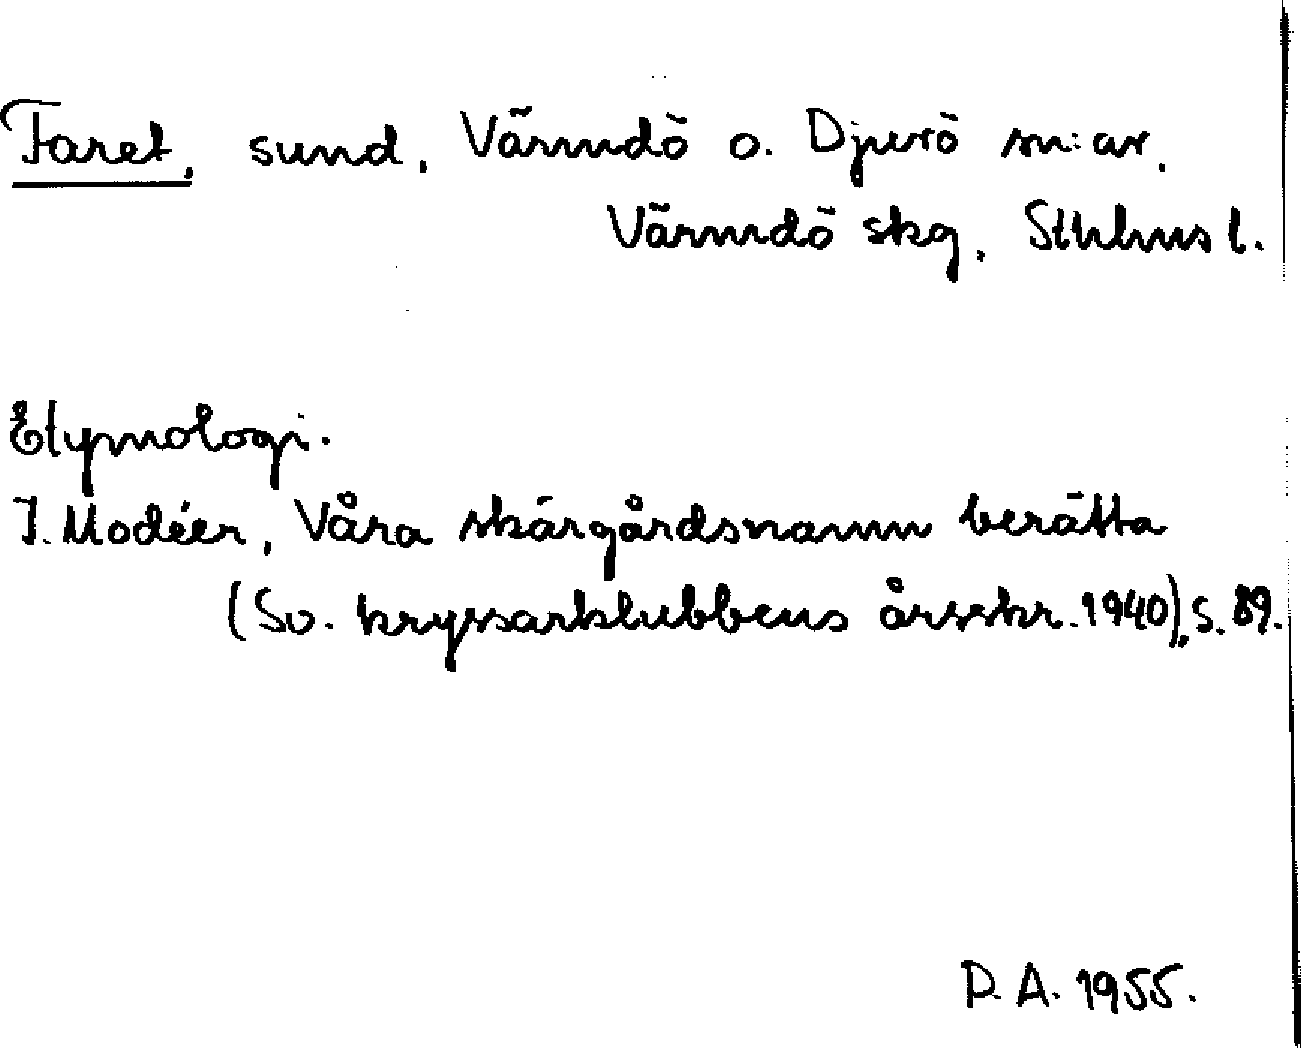 Faret, sund, Värmdö o. Djurö sn:ar.
Värmdö skg, Sthlms l.
Etymologi.
I. Modéer, Våra skärgårdsnamn berätta
(Sv. kryssarklubbens årsskr. 1940), s. 89.
P. A. 1955.